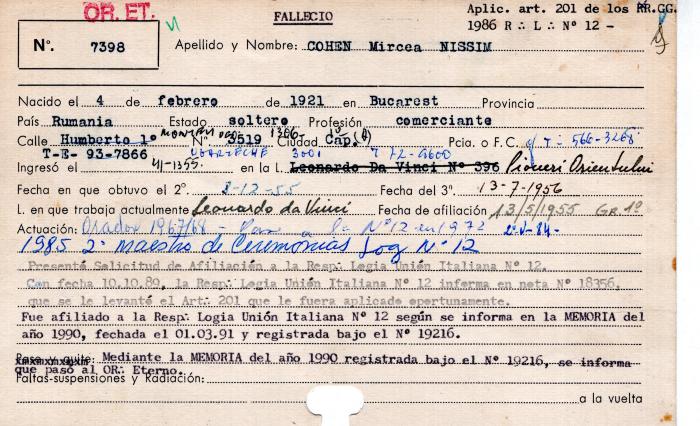 OR. ET.
FALLECIO
Aplic. art. 201 de los RR.GG.
1986 R∴ L∴ Nº 12 -
Nº. 7398
Apellido y Nombre: COHEN Mircea NISSIM
Nacido el 4 de febrero de 1921 en Bucarest Provincia
País Rumania Estado soltero Profesión comerciante
Calle Humberto 1º Nº 3519 Ciudad Cap. Pcia. o F.C. 
T-E- 93-7866 3001 772-9600
Ingresó el en la L. Leonardo Da Vinci Nº 396
Fecha en que obtuvo el 2º. 2-12-55 Fecha del 3º. 13-7-1956
L. en que trabaja actualmente Leonardo da Vinci Fecha de afiliación 13/5/1955 GR. 1º
Actuación: Orador 1967/68 - Pase a la Nº 12 en 1972
1985 2º maestro de Ceremonias Log Nº 12
Presentó Solicitud de Afiliación a la Resp∴ Logia Unión Italiana Nº 12.
Con fecha 10.10.89, la Resp∴ Logia Unión Italiana Nº 12 informa en nota Nº 18356,
que se le levantó el Art. 201 que le fuera aplicado oportunamente.
Fue afiliado a la Resp∴ Logia Unión Italiana Nº 12 según se informa en la MEMORIA del
año 1990, fechada el 01.03.91 y registrada bajo el Nº 19216.
Pase y quite: Mediante la MEMORIA del año 1990 registrada bajo el Nº 19216, se informa
que pasó al OR∴ Eterno.
Faltas-suspensiones y Radiación:
a la vuelta